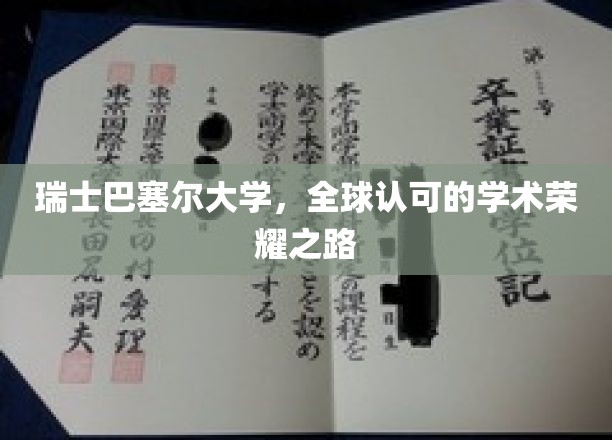 瑞士巴塞尔大学，全球认可的学术荣
耀之路
第
号
卒業証
学位記
本学商学部
の課程を
日生
修めて本学
ことを認め
学士(商学)の学
する
平成
東京国際大学
長田村愛理
東京国際大
長田尻嗣夫